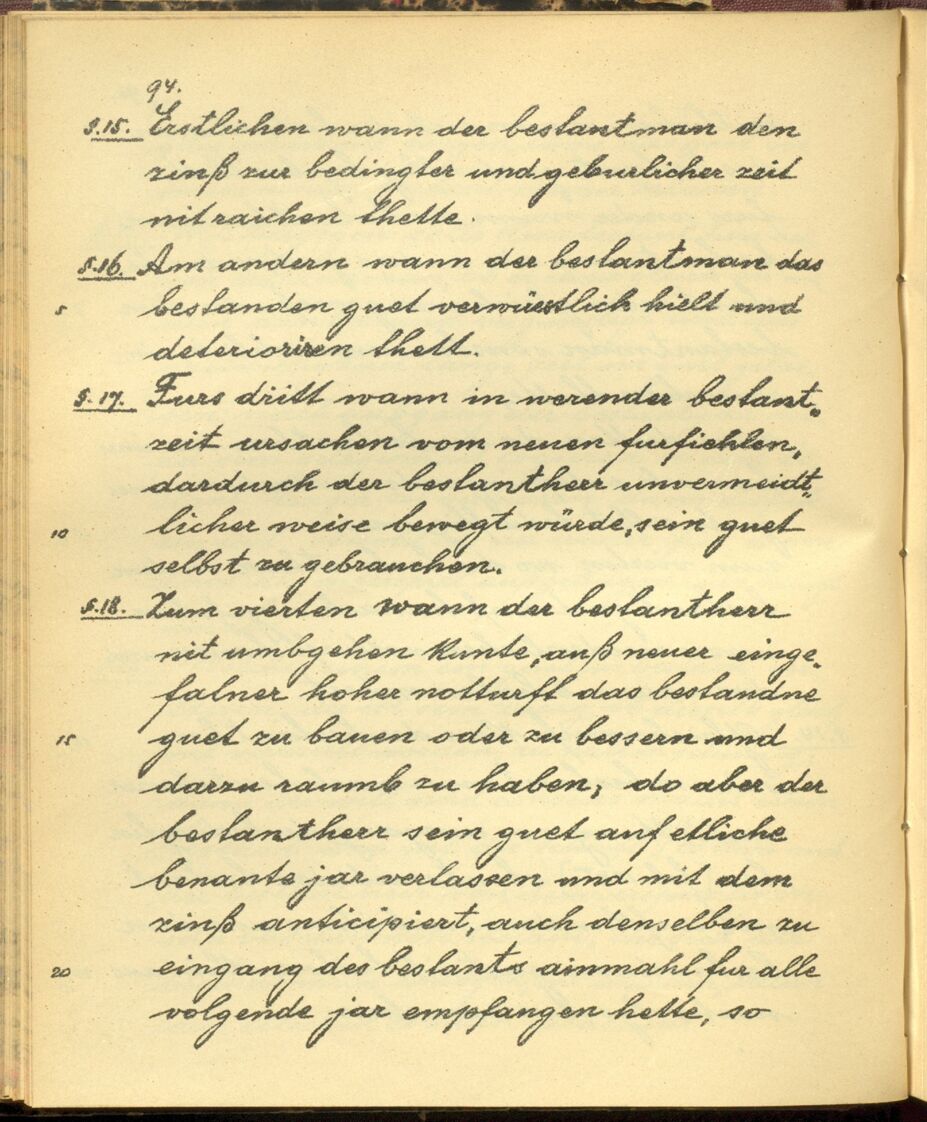 94.
§.15. Erstlichen wann der bestantman den
zinß zur bedingter und geburlicher zeit
nit raichen thette.
§.16. Am andern wann der bestantman das
5 bestanden guet verwüestlich hielt und
deterioriren thett.
§.17. Furs dritt wann in werender bestant„
zeit ursachen vom neuen furfiehlen,
dardurch der bestantherr unvermeidt„
10 licher weise bewegt würde, sein guet
selbst zu gebrauchen.
§.18. Zum vierten wann der bestantherr
nit umbgehen kunte, auß neuer einge„
falner hoher notturft das bestandne
15 guet zu bauen oder zu bessern und
darzu raumb zu haben; do aber der
bestantherr sein guet auf etliche
benante jar verlassen und mit dem
zinß anticipiert, auch denselben zu
20 eingang des bestants ainmahl fur alle
volgende jar empfangen hette, so